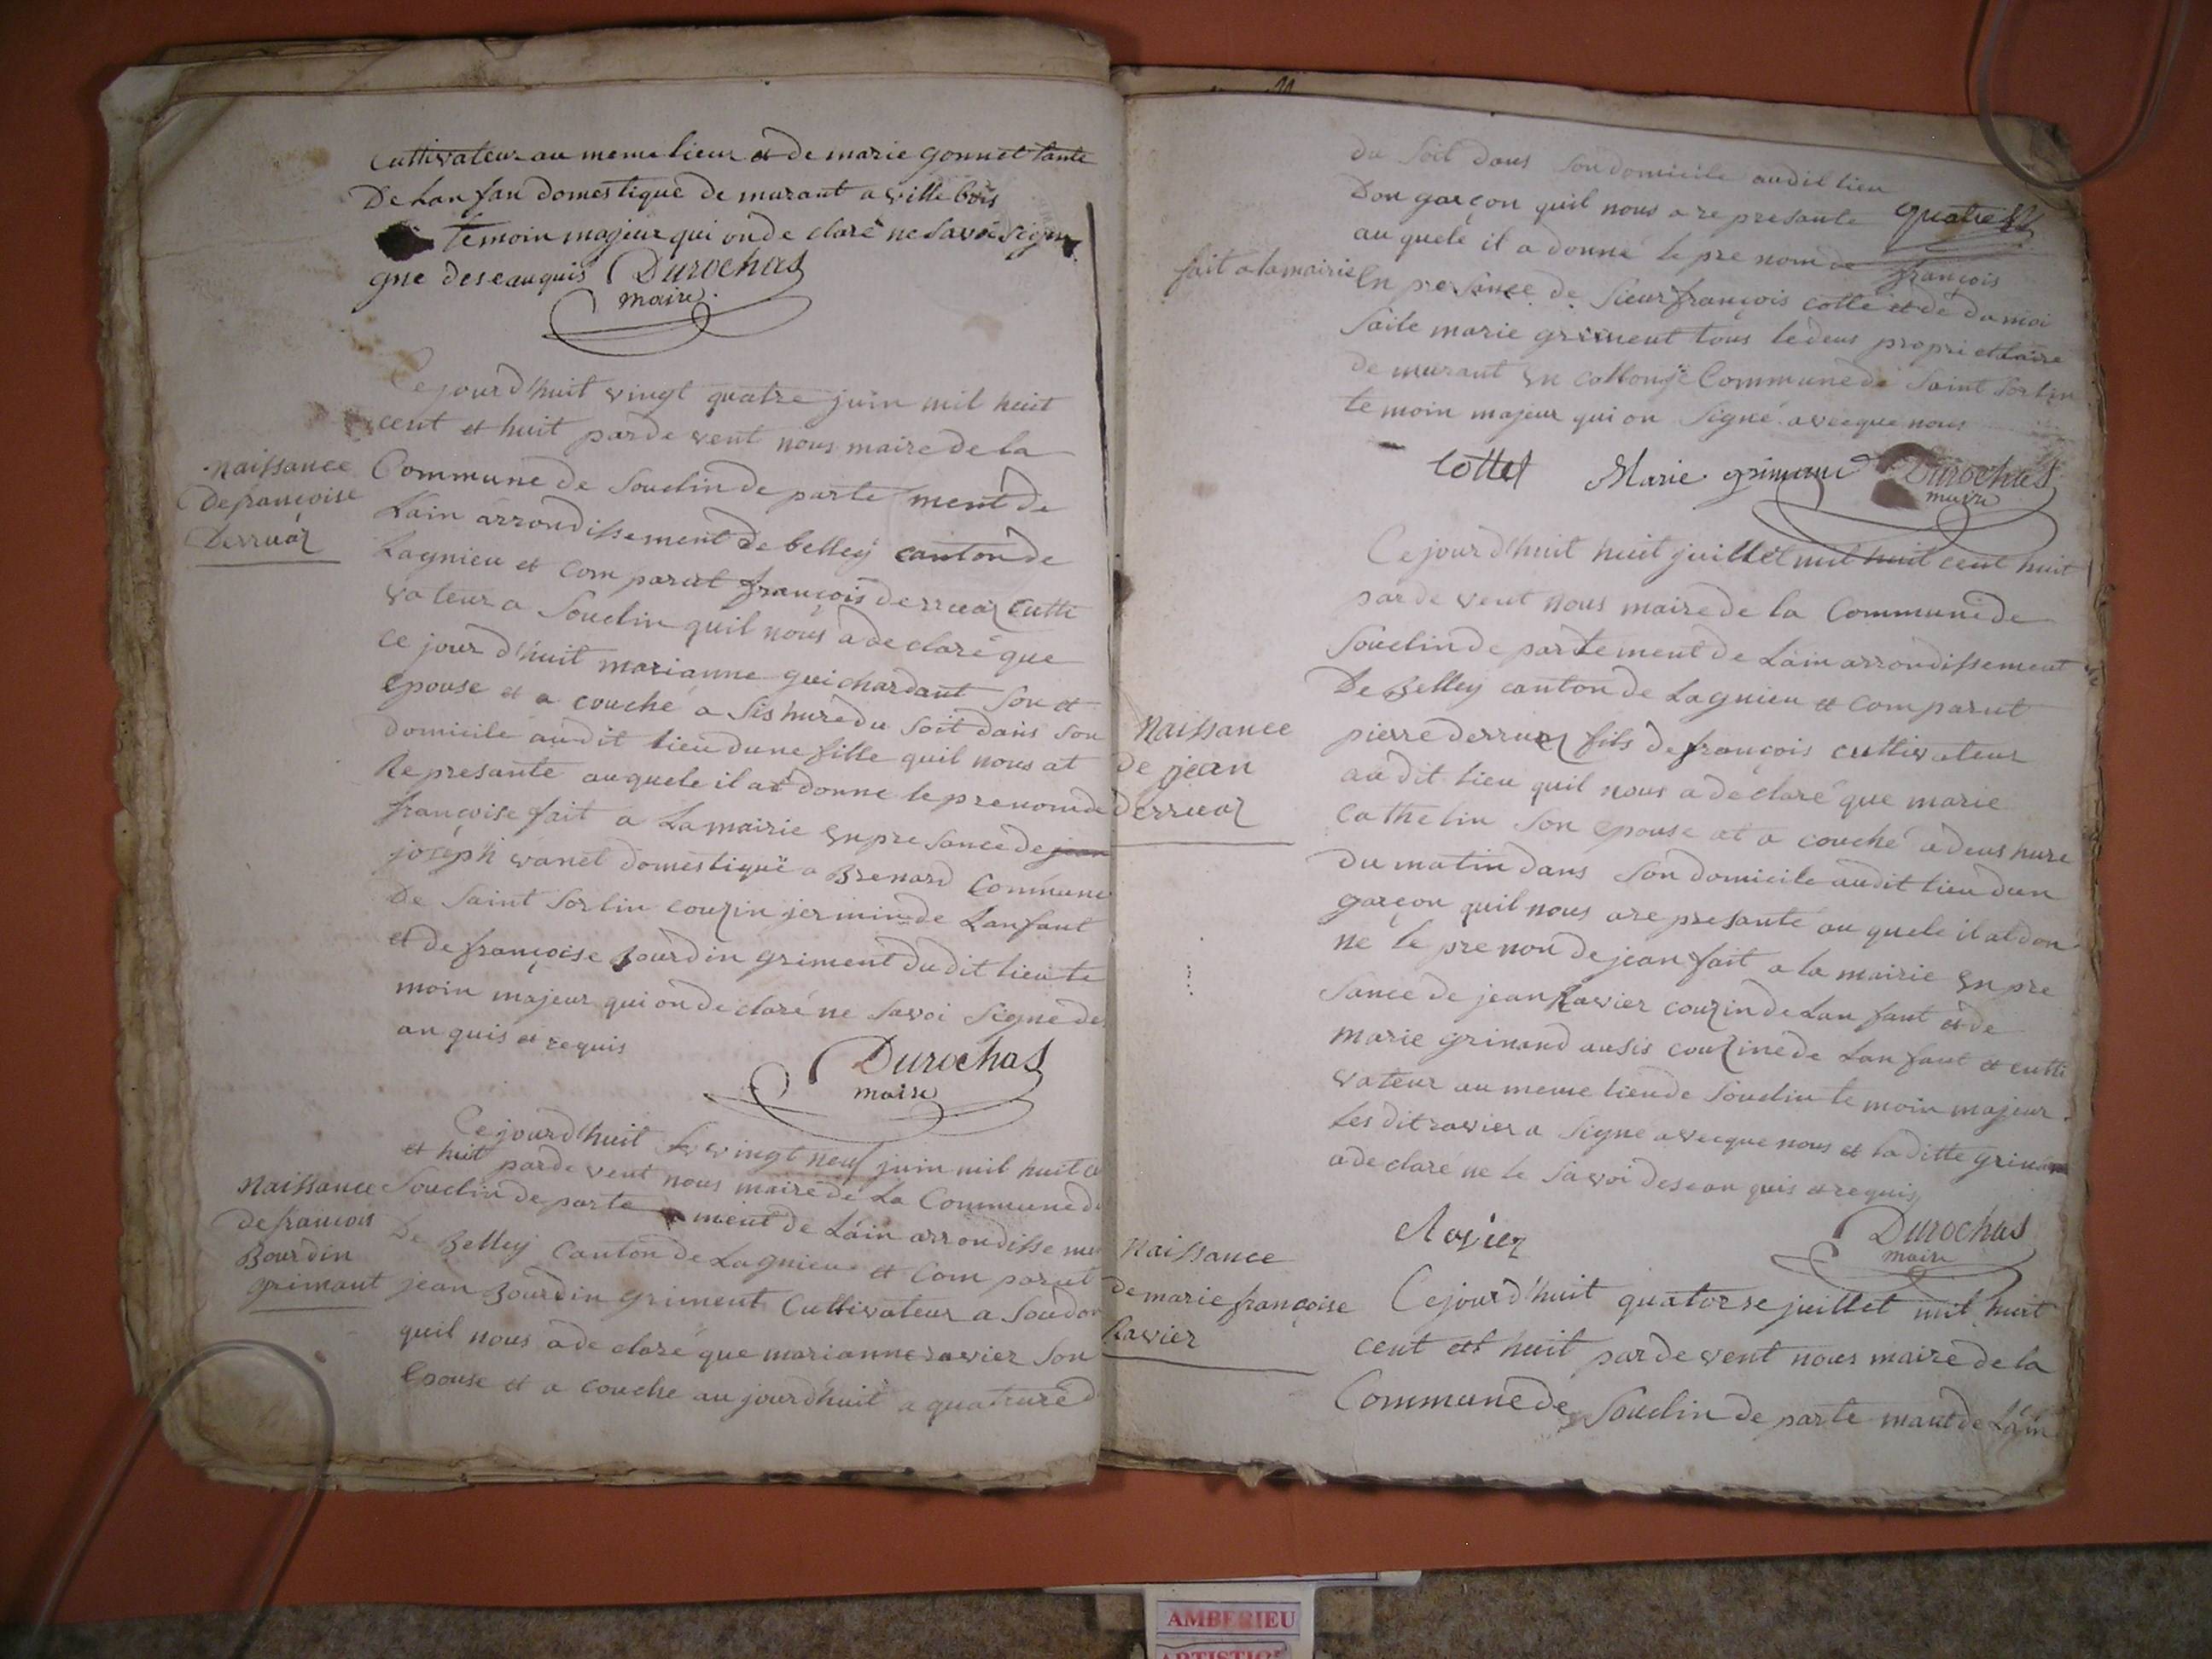 Cultivateur au meme lieux et de marie gonnet tante
De Lan fan domestique de murant a ville bois
temoin majeur qui on de claré ne savoi signe
gne de se anquis Durochas
maire
Ce jour d'huit vingt quatre juin mil huit
cent et huit par de vent nous maire de la
Commune de Souclin de parte ment de
Lain arrondissement de belley canton de
Lagnieu et com parut françois derruaz culti
vateur a Souclin quil nous a de claré que
ce jour d'huit marianne guichardant son et
epouse et a couché a sis hure du soit dans son
domicile au dit lieu dune fille quil nous at
Re presante au quele il at donne le prenom de
françoise fait a La mairie en pre sance de jean
joseph vanet domestique a Brenard Commune
De Saint Sorlin couzin jermin de Lanfant
et de françoise Bourdin griment du dit lieu te
moin majeur qui on de claré ne savoi signe de
an quis et requis
Durochas
maire
naissance
De françoise
Derruaz
Ce jour d'huit vingt neuf juin mil huit ce
et huit par de vent nous maire de La Commune de
Souclin de parte ment de Lain arrondisse me
De Belley Canton de Lagnieu et Com parut
jean Bourdin griment Cultivateur a Soudon
quil nous a de claré que marianne ravier son
Epouse et a couche au jourd'huit a quatrure d
Naissance
de francois
Bourdin
grimant
du soit dans son domicile au dit lieu
Dun garçon quil nous a re presante quatre
au quele il a donné le pre nom de françois
fait a la mairie En pre sance de Sieur françois cotte et de da moi
saile marie griment tous le deus propri ettaire
de murant en collonge Commune de Saint Sorlin
te moin majeur qui on signé avecque nous
Cottet Marie grimand Durochas
maire
Ce jour d'huit huit juillet mil huit cent huit
par de vent nous maire de la Commune de
Souclin de parte ment de Lain arrondissement
De Belley canton de Lagnieu et com parut
pierre derruaz fils de françois cultivateur
au dit lieu quil nous a de claré que marie
Cathelin son epouse at a couché a deus hure
du matin dans son domicile au dit lieu dun
garçon quil nous a re presante au quele il at don
ne le pre nom de jean fait a la mairie en pre
sance de jean Ravier couzin de Lan fant et de
marie grinand ausis couzine de Lan fant et culti
vateur au meme lieu de Souclin te moin majeur
Les dit ravier a signe avecque nous et la ditte grinan
a de claré ne le savoi de se an quis et requis
Ravier
Durochas
maire
Naissance
de jean
Derruaz
Ce jour d'huit quatorze juillet mil huit
cent et huit par de vent nous maire de la
Commune de Souclin de parte mant de Lain
Naissance
De marie françoise
Ravier
AMBERIEU
ARTISTIQUE